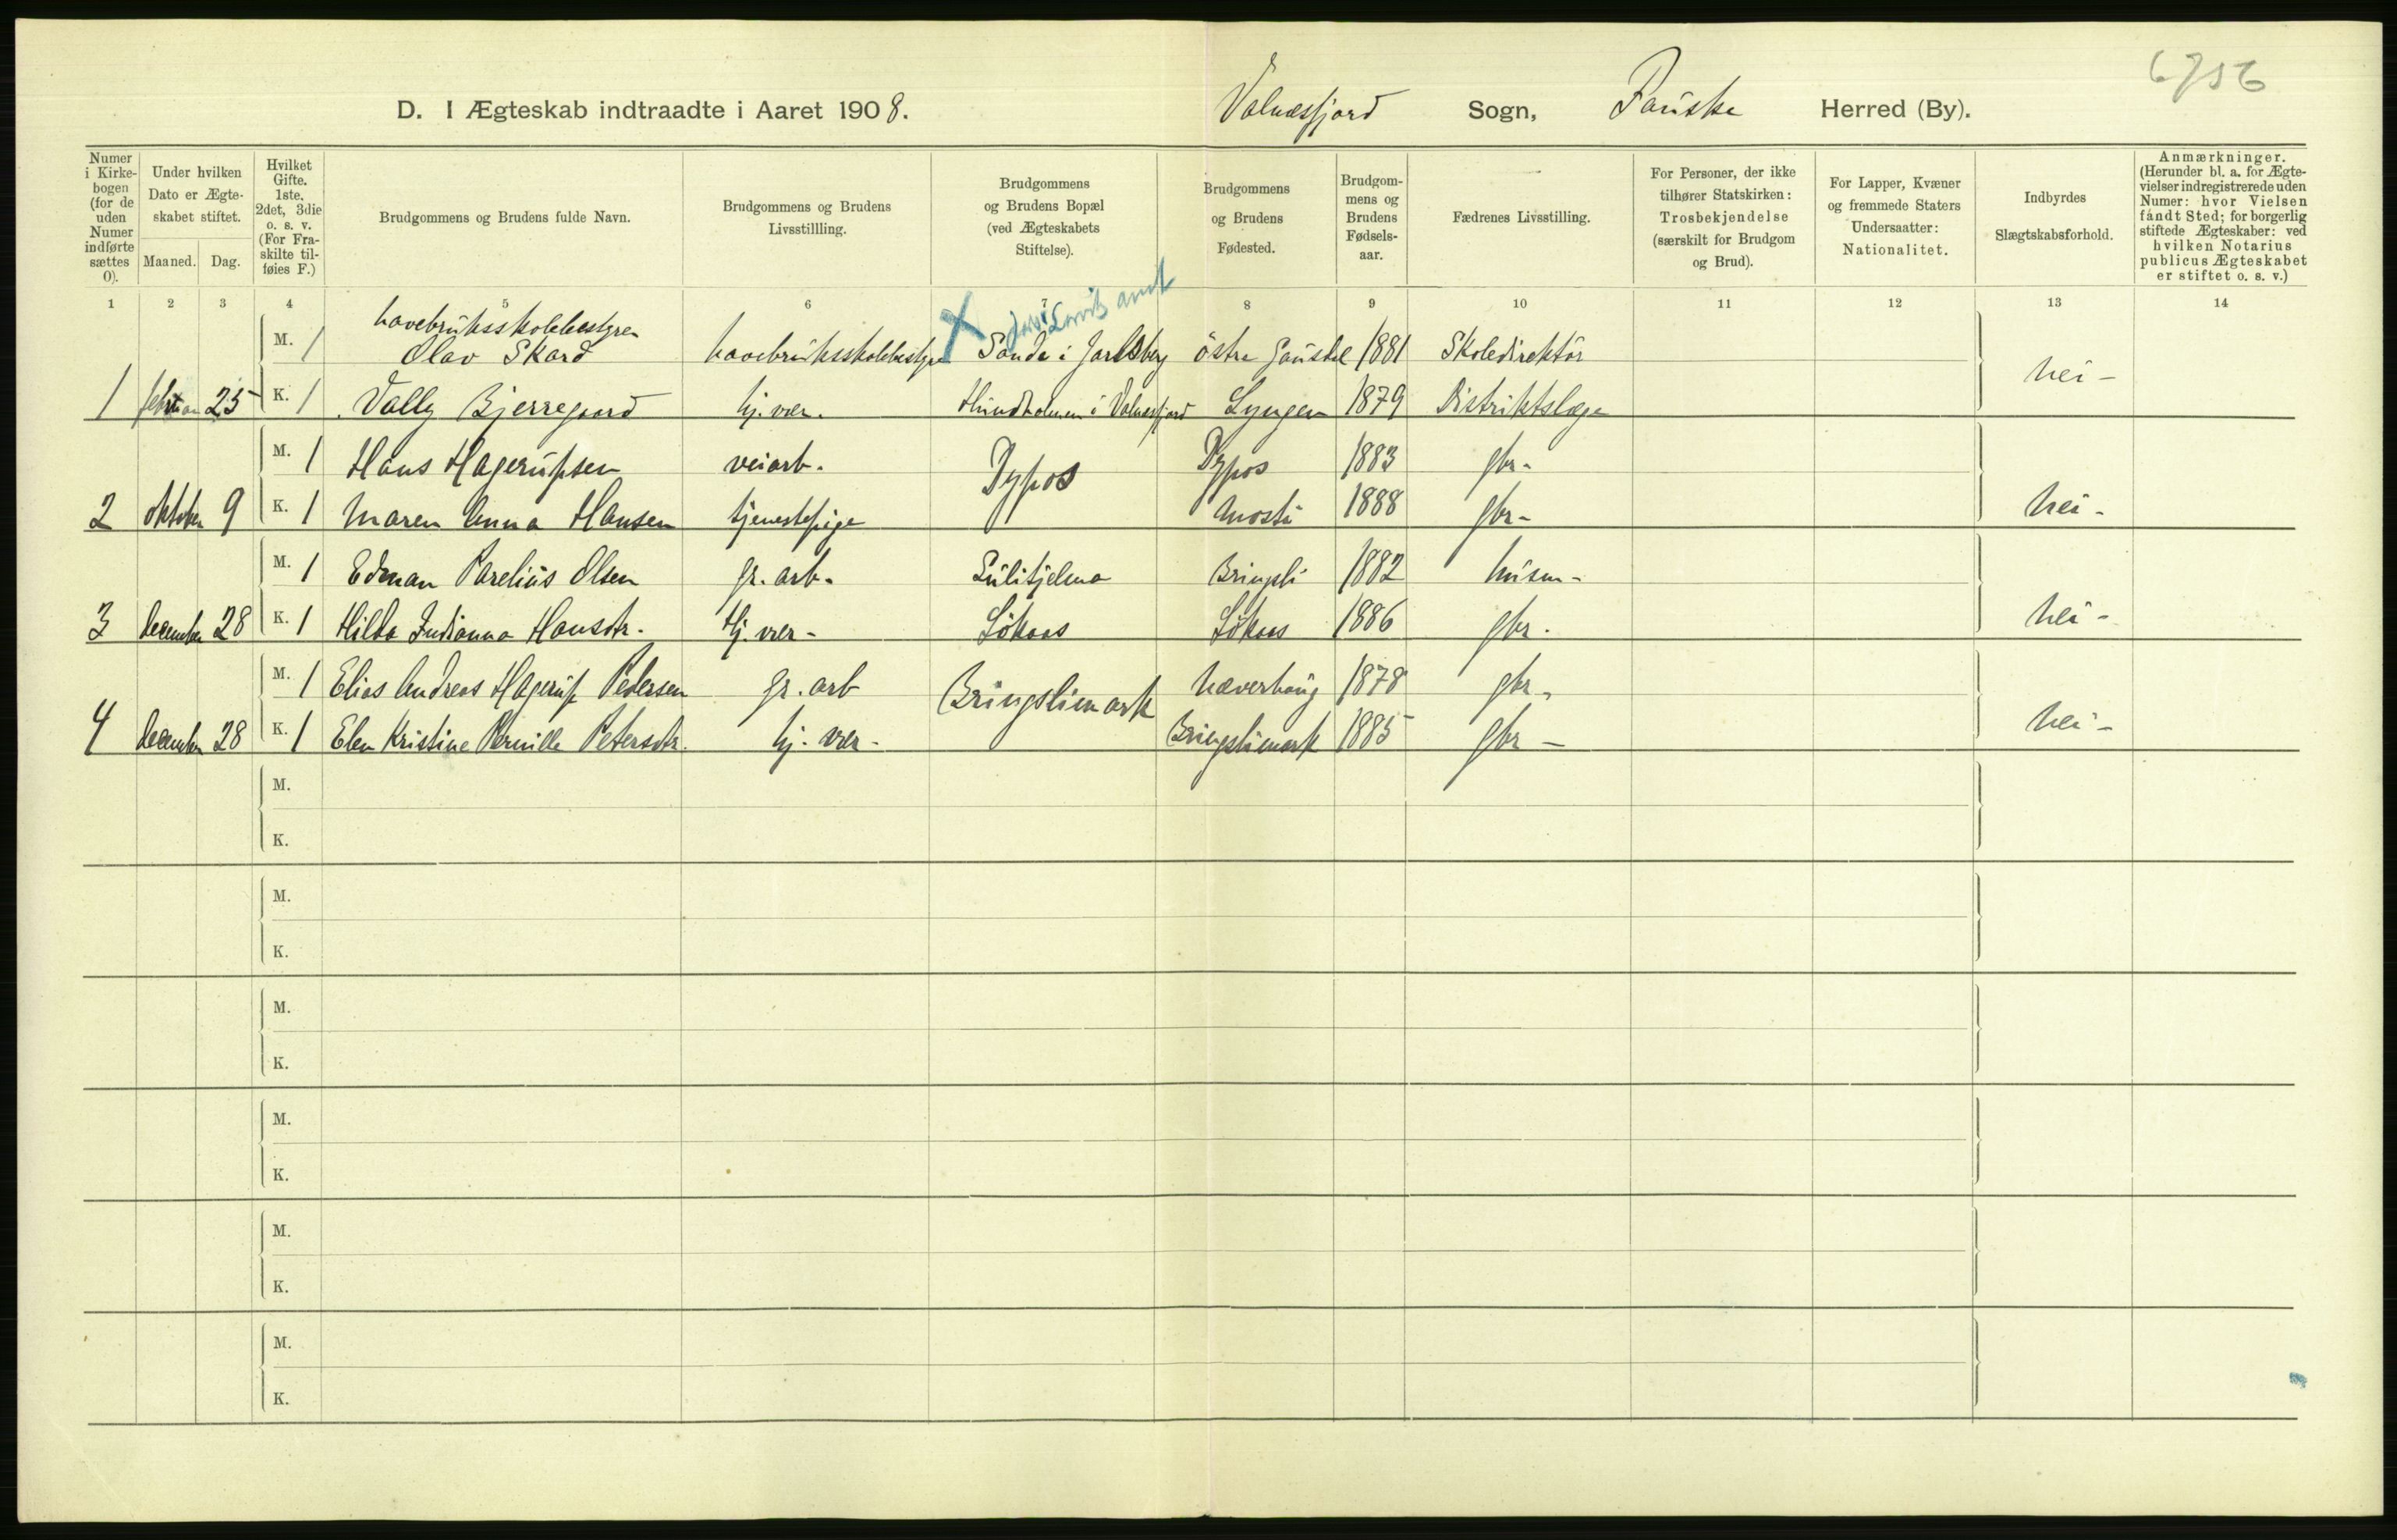 6756
D. I Ægteskab indtraadte i Aaret 1908. Valnæsfjord Sogn, Fauske Herred (By).
Numer i Kirke-bogen (for de uden Numer indførte sættes 0).
Under hvilken Dato er Ægte-skabet stiftet.
Maaned. Dag.
Hvilket Gifte. 1ste, 2det, 3die o. s. v. (For Fra-skilte til-føies F.)
Brudgommens og Brudens fulde Navn.
Brudgommens og Brudens Livsstillling.
Brudgommens og Brudens Bopæl (ved Ægteskabets Stiftelse).
Brudgommens og Brudens Fødested.
Brudgom-mens og Brudens Fødsels-aar.
Fædrenes Livsstilling.
For Personer, der ikke tilhører Statskirken: Trosbekjendelse (særskilt for Brudgom og Brud).
For Lapper, Kvæner og fremmede Staters Undersaatter: Nationalitet.
Indbyrdes Slægtskabsforhold.
Anmærkninger. (Herunder bl. a. for Ægte-vielser indregistrerede uden Numer: hvor Vielsen fandt Sted; for borgerlig stiftede Ægteskaber: ved hvilken Notarius publicus Ægteskabet er stiftet o. s. v.)
1 2 3 4 5 6 7 8 9 10 11 12 13 14
havebruksskolebestyrer
M. 1 Olav Skard havebruksskolebestyrer Sande i Jarlsberg östre Gausdal 1881 Skoledirektör
1 februar 25 K. 1 Vally Bjerregaard hj. vær. Hundholmen i Valnæsfjord Lyngen 1879 Distriktslæge nei -
M. 1 Hans Hagerupsen veiarb. Dypos Dypos 1883 gbr.
2 oktober 9 K. 1 Maren Anna Hansen tjenestepige Mosti 1888 gbr - nei -
M. 1 Edman Parelius Olsen gr. arb. Sulitjelma Bringsli 1882 husm -
3 december 28 K. 1 Hilda Indianna Hansdtr. Hj. vær - Lökaas Lökaas 1886 gbr. nei -
M. 1 Elias Andreas Hagerup Pedersen gr. arb Bringslimark Næverhaug 1878 gbr.
4 december 28 K. 1 Elen Kristine Pernille Petersdtr. hj. vær - Bringslimark 1885 gbr - nei -
M.
K.
M.
K.
M.
K.
M.
K.
M.
K.
M.
K.